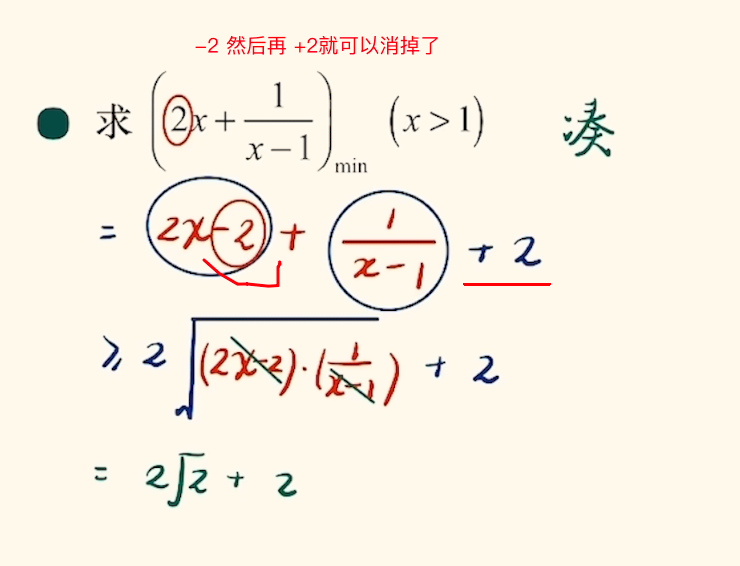 -2 然后再 +2就可以消掉了
求 (2x + 1/(x-1))min (x > 1) 凑
= 2x-2 + 1/(x-1) + 2
≥ 2√((2x-2)·(1/(x-1))) + 2
= 2√2 + 2